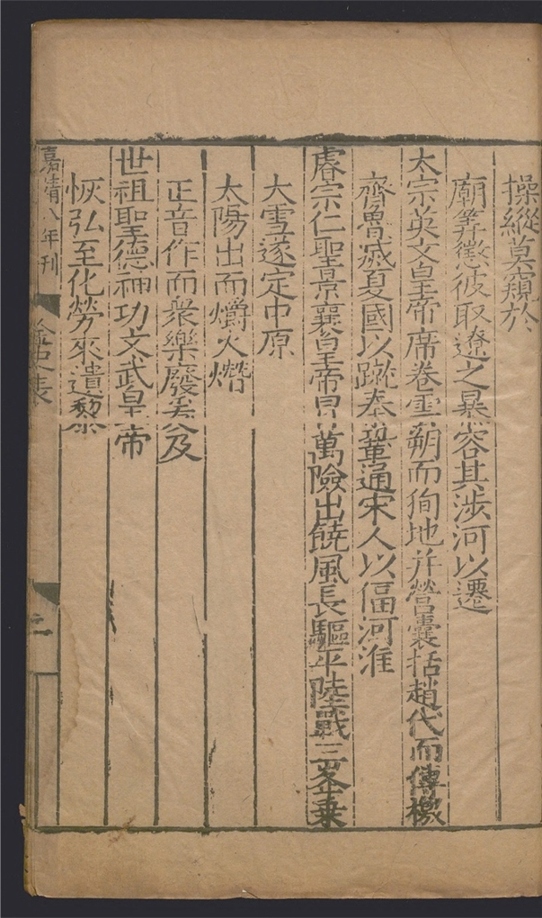 操縱莫窺於
廟筭懲彼取遼之暴容其涉河以遷
太宗英文皇帝席卷雲朔而徇地并營囊括趙代而傳檄
齊魯滅夏國以蹴秦鞏通宋人以偪河淮
睿宗仁聖景襄皇帝冒萬險出饒風長驅平陸戰三峯乗
大雪遂定中原
太陽出而爝火熸
正音作而衆樂廢爰及
世祖聖德神功文武皇帝
恢弘至化勞來遺黎
嘉靖八年刊
金史表
二